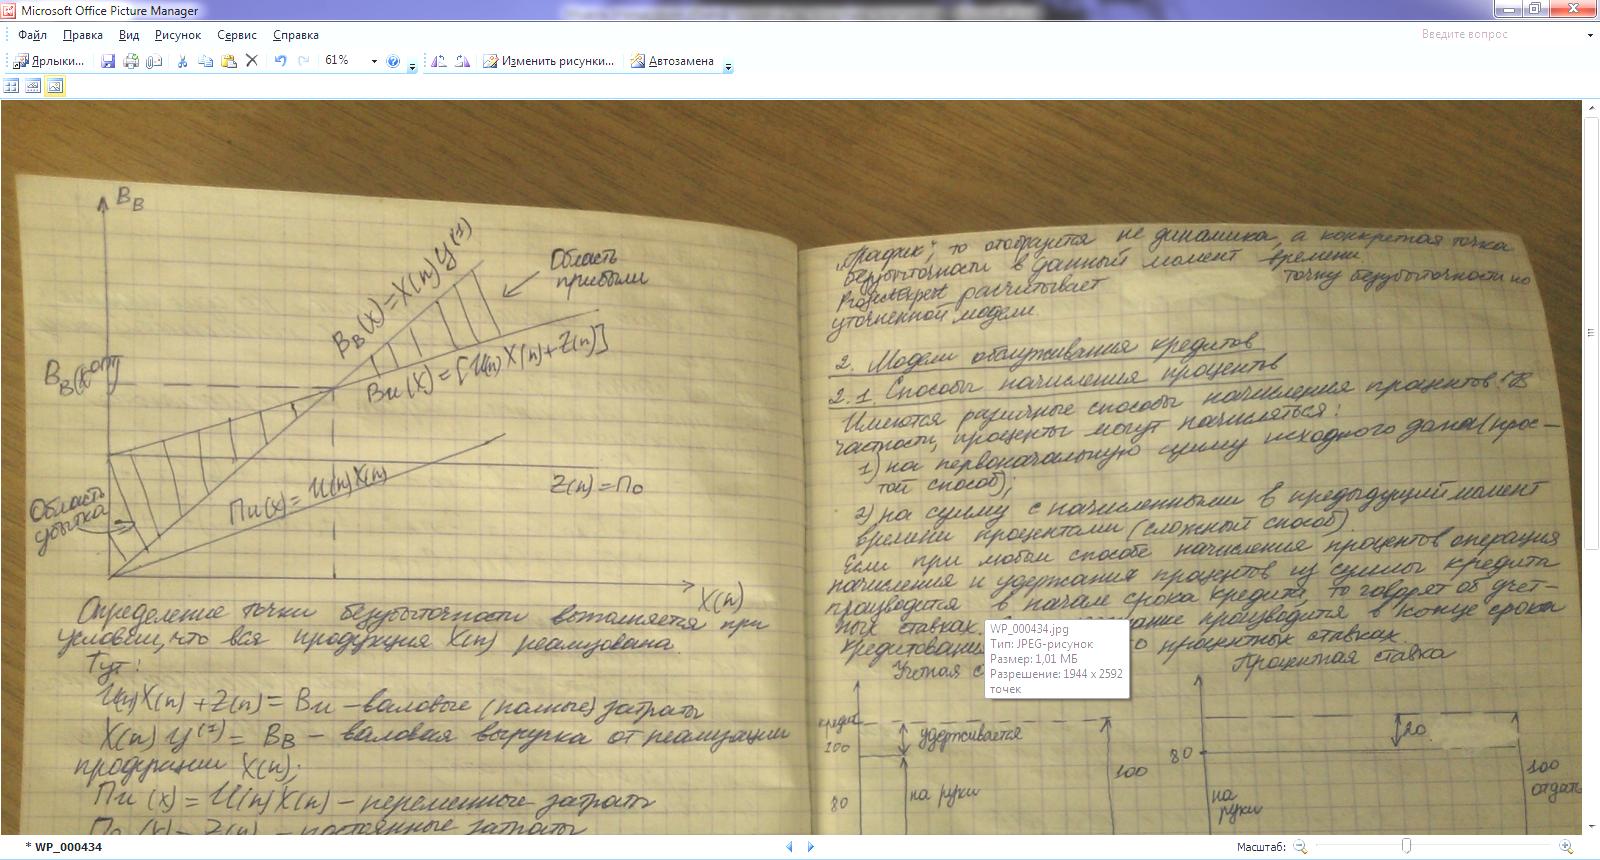 Microsoft Office Picture Manager
Файл Правка Вид Рисунок Сервис Справка
Введите вопрос
Ярлыки...
61%
Изменить рисунки...
Автозамена
Bв
Bв(x)=X(n)Y(1)
Область
прибыли
Bи(X)=[U(n)X(n)+Z(n)]
Bв(xопт)
Область
убытка
Пи(x)=U(n)X(n)
Z(n)=По
X(n)
Определение точки безубыточности выполняется при
условии, что вся продукция X(n) реализована.
Тут:
U(n)X(n)+Z(n)=Bи -валовые (полные) затраты
X(n)Y(1)=Bв - валовая выручка от реализации
продукции X(n);
Пи(x)=U(n)X(n) - переменные затраты
По(x)=Z(n) - постоянные затраты
"График", то отобразится не динамика, а конкретная точка
безубыточности в данный момент времени
Project Expert расчитывает точку безубыточности по
уточненной модели.
2. Модели обслуживания кредитов
2.1 Способы начисления процентов
Имеются различные способы начисления процентов. В
частности, проценты могут начисляться:
1) на первоначальную сумму исходного (прос-
той способ);
2) на сумму с начисленными в предыдущий момент
времени процентами (сложный способ).
Если при любом способе начисления процентов операция
начисления и удержания процентов из суммы кредита
производится в начале срока кредита, то говорят об учет-
ных ставках. производится в конце срока
кредитовани о процентных ставках.
Учетная с
Процентная ставка
WP_000434.jpg
Тип: JPEG-рисунок
Размер: 1,01 МБ
Разрешение: 1944 x 2592
точек
кредит
100
удерживается
80
на руки
100
80
20
на
руки
100
отдать
* WP_000434
Масштаб: